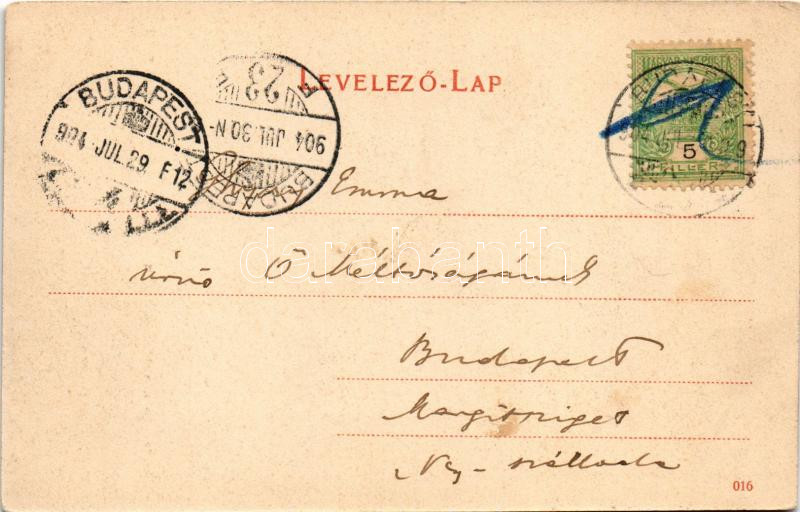 LEVELEZŐ-LAP
BUDAPEST
904 JUL. 29. F 12
904 JUL. 30. N
F 23
BUDAPE
MAGYAR KIR. POSTA
5
FILLÉR
Emma
úrnő Ő Méltóságának
darabanth
Budapest
Margitsziget
Nagy-szálloda
016